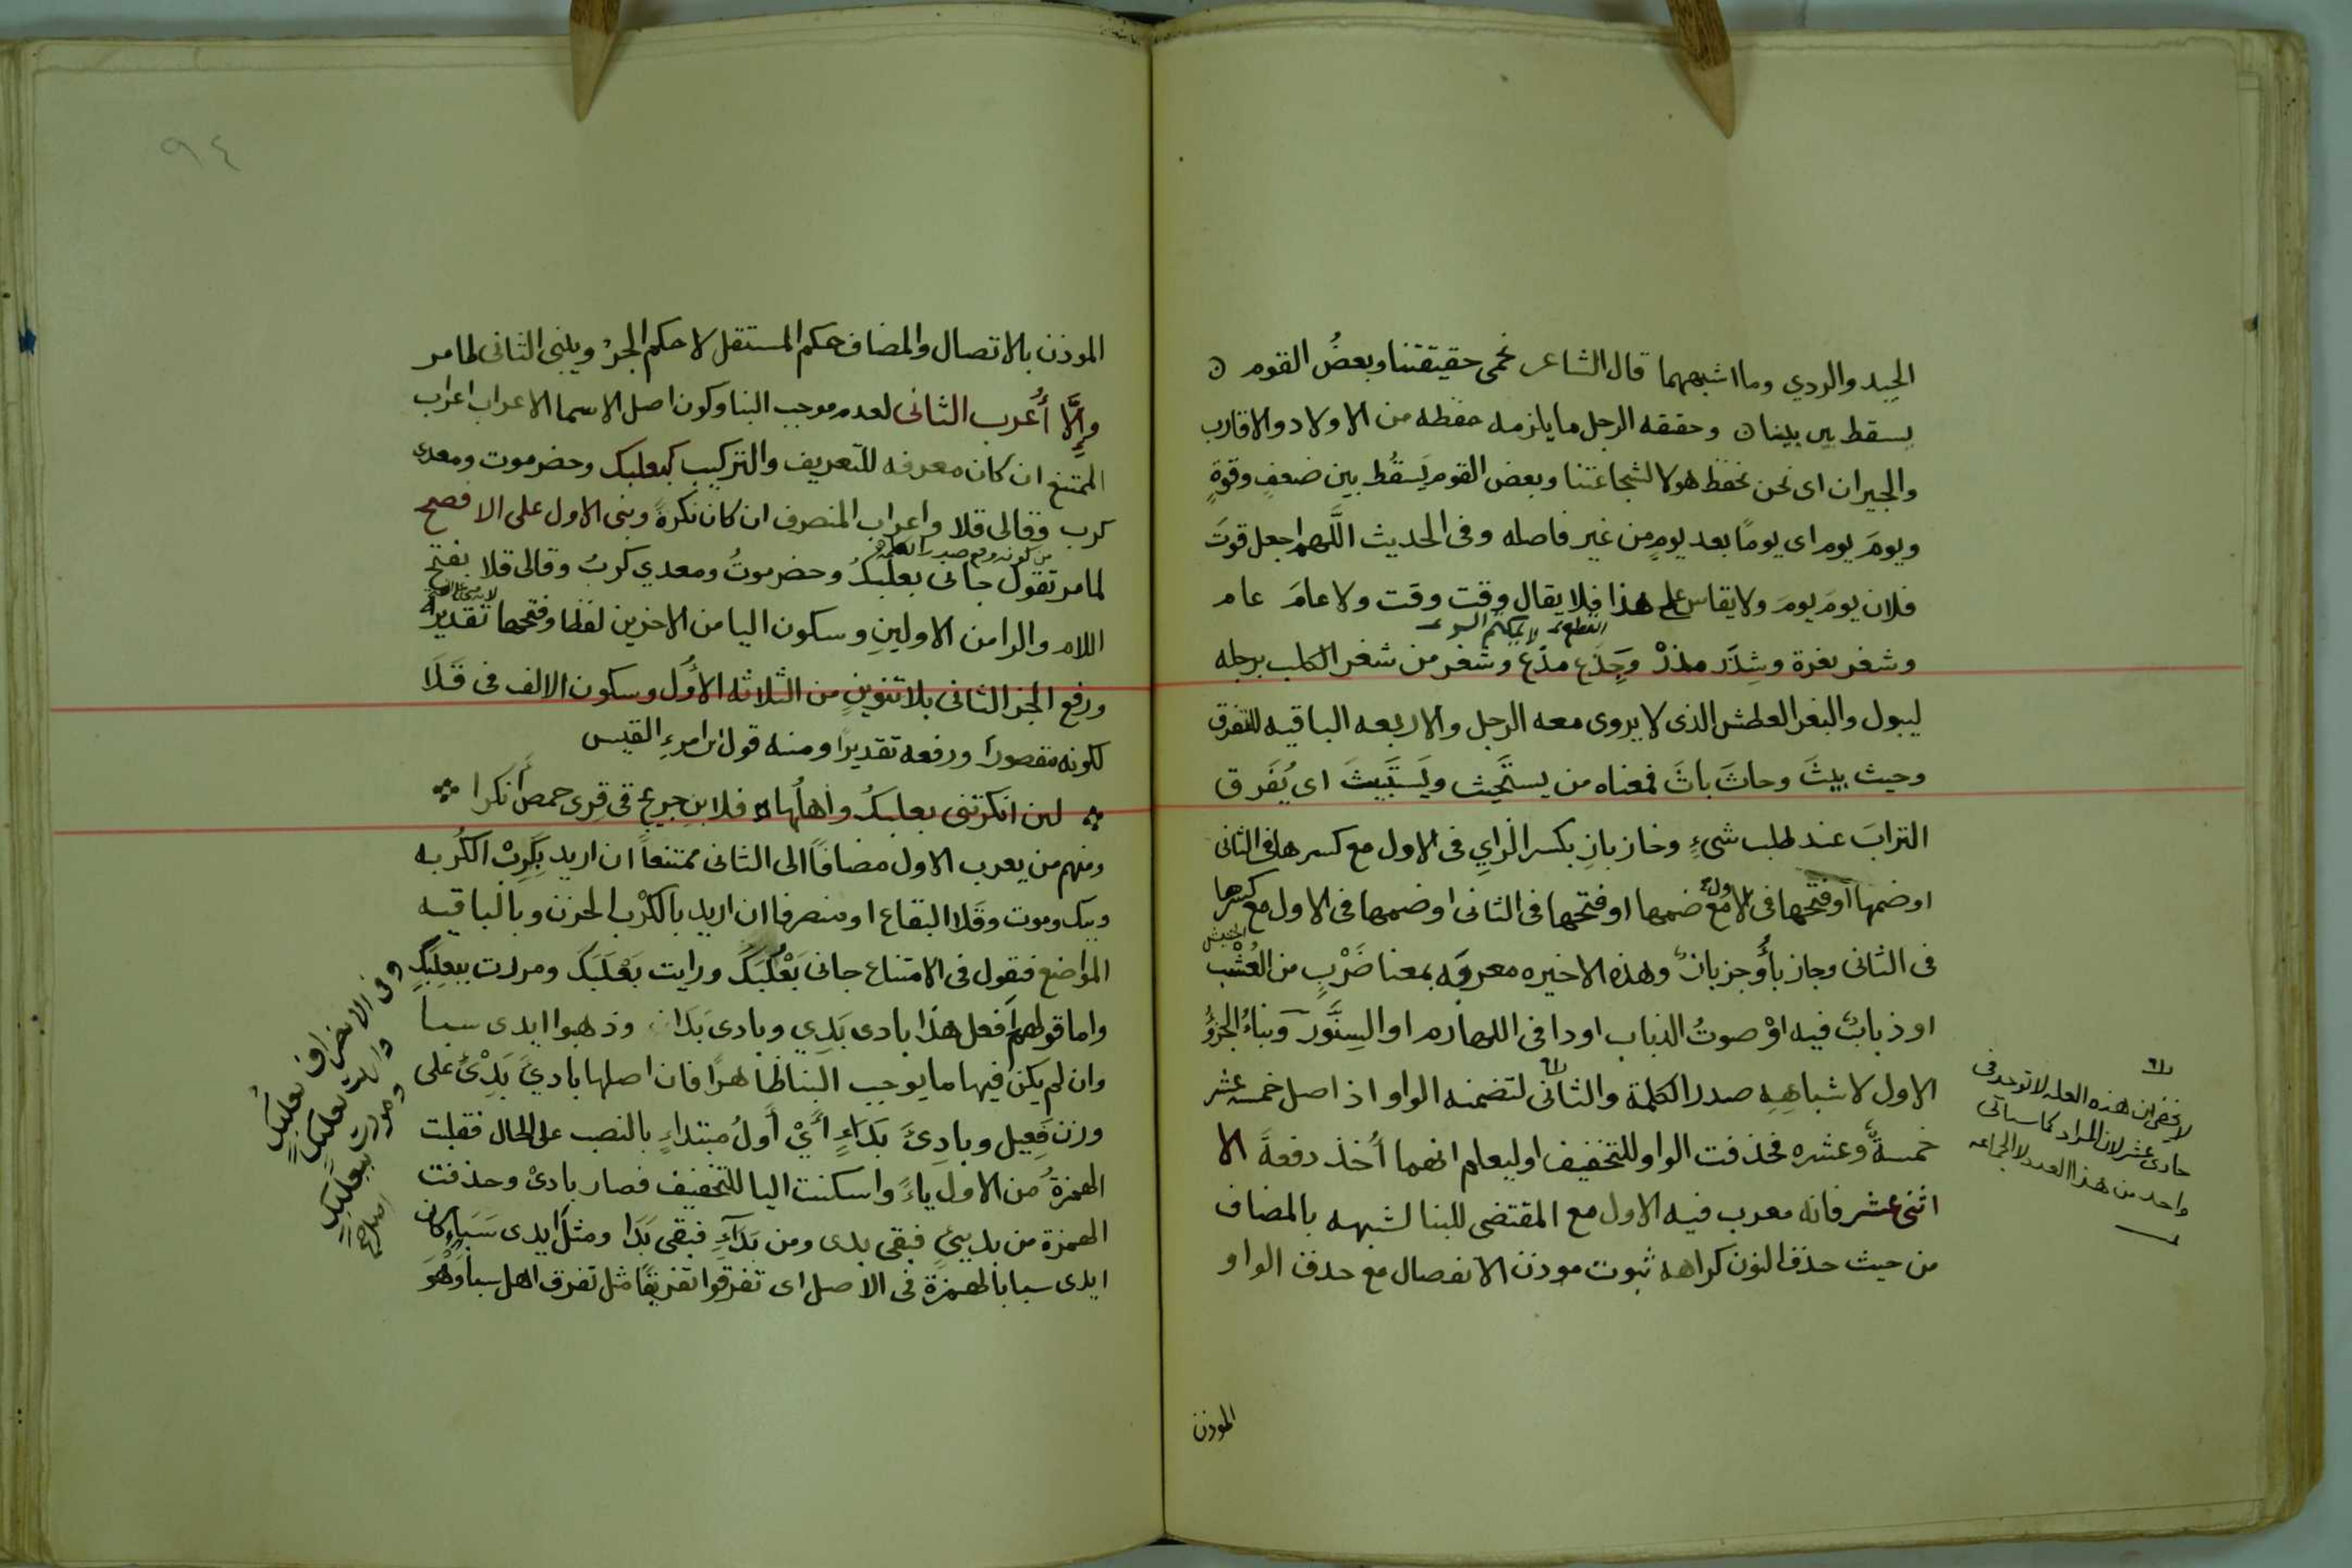 الجيد والردي وما اشبههما قال الشاعر نحمى حقيقتنا وبعضُ القوم ن
يسقط بين بينا ن وحقيقه الرجل ما يلزمه حفظه من الاولاد والاقارب
والجيران اى نحن نحفظ هولا لشجاعتنا وبعض القوم يَسقُط بين ضعفٍ وقوةٍ
ويومَ يوم اى يومًا بعد يومٍ من غير فاصله وفى الحديث اللَّهم اجعل قوتَ
فلان يومَ يومَ ولا يقاس على هذا فلا يقال وقت وقت ولا عامَ عام
القطع لا يكتم السر
وشغر بغرة وشِذَر مذرْ وَجِذَع مذَع وشغر من شغر الكلب برجله
ليبول والبغر العطش الذى لا يروى معه الرجل والاربعه الباقيه للتفرق
وحيث بيثَ وحاثَ باثَ فمعناه من يستَحيث ويَستَبيثَ اى يُفَرق
الترابَ عند طلب شىءٍ وخاز بازِ بكسر الزايِ فى الاول مع كسرها فى الثانى
او ضمها او فتحها فى الاول مع ضمها او فتحها فى الثانى او ضمها فى الاول مع كسرها
فى الثانى وجاز بأُ وجزبازٌ وهذه الاخيره معروفه بمعنا ضَرْبٍ من العُشْب
او ذبابٌ فيه اوْ صوتُ الذباب او دا فى اللهازم او السِنَّور وبناءُ الجزؤُ
الاول لاشباهِهِ صدر الكلمة والثانى لتضمنه الواو اذ اصل خمسه عشر
خمسةٌ وعشره فحذفت الواو للتخفيف او ليعلم انهما أُخذ دفعةً الا
اثنى عشر فانه معرب فيه الاول مع المقتضى للبنا لشبهه بالمضاف
من حيث حذف النون كراهه ثبوت موذن الانفصال مع حذف الواو
المودن
لا يخفى ان هذه العله لا توجد فى
حادى عشر لان المراد كما سياتى
واحد من هذا العدد لا الجماعه
٩٤
الموذن بالاتصال وللمضاف حكم المستقل لا حكم الجزْ ويبنى الثانى لما مر
وإِلَّا أُعرب الثانى لعدم موجب البنا وكون اصل الاسما الاعراب اعراب
الممتنع ان كان معرفه للتعريف والتركيب كبعلبك وحضرموت ومعدى
كرب وقالى قلا واعراب المنصرف ان كان نكرةً وبنى الاول على الافصح
من كونه وقع صدر الكلمة
لما مر تقول جانى بعلبكُ وحضرموتُ ومعدي كربُ وقالى قلا بفتح
اللام والرا من الاولينِ وسكون اليا من الاخرين لفظا وفتحها تقديرًا
ورفع الجز الثانى بلا تنوينٍ من الثلاثه الأُوَل وسكون الالف فى قَلَا
لكونه مقصورا ورفعه تقديرًا ومنه قول امرءِ القيس
لين انكرتنى بعلبكُ واهلُها فلابنِ جريج فى قرى حمص انكرا
ومنهم من يعرب الاول مضافًا الى الثانى ممتنعاً ان اريد بِكَرِبْ الكُربه
وبك وموت وقَلا البقاع او منصرفا ان اريد بالكرْب الحزن وبالباقيه
المواضع فيقول فى الامتناع جانى بَعْلُبَكَ ورايت بَعْلَبَكَ ومررت ببعلِبَكَ
واما قولهم افعل هذا بادى بَدِي وبادى بَدَا وذهبوا ايدى سبا
وان لم يكن فيها ما يوجب البنا ظاهرًا فان اصلها باديَ بَدِئ على
وزن فَعِيل وبادِئَ بَدَاءٍ أَيْ أَولُ مبتداءٍ بالنصب على الحال فقلبت
الهمزةُ من الاول ياءً واسكنت اليا للتخفيف فصار بادىْ وحذفت
الهمزة من بديئٍ فبقى بدى ومن بَدَآءٍ فبقى بَدَا ومثل ايدى سَبَا كان
ايدى سبا بالهمزة فى الاصل اى تفرقوا تفريقًا مثل تفرق اهل سبا وَهْوَ
وفى الانصراف بعلُبكٍ
ورايت بعلَبكٍ
ومررت ببعلِبكٍ